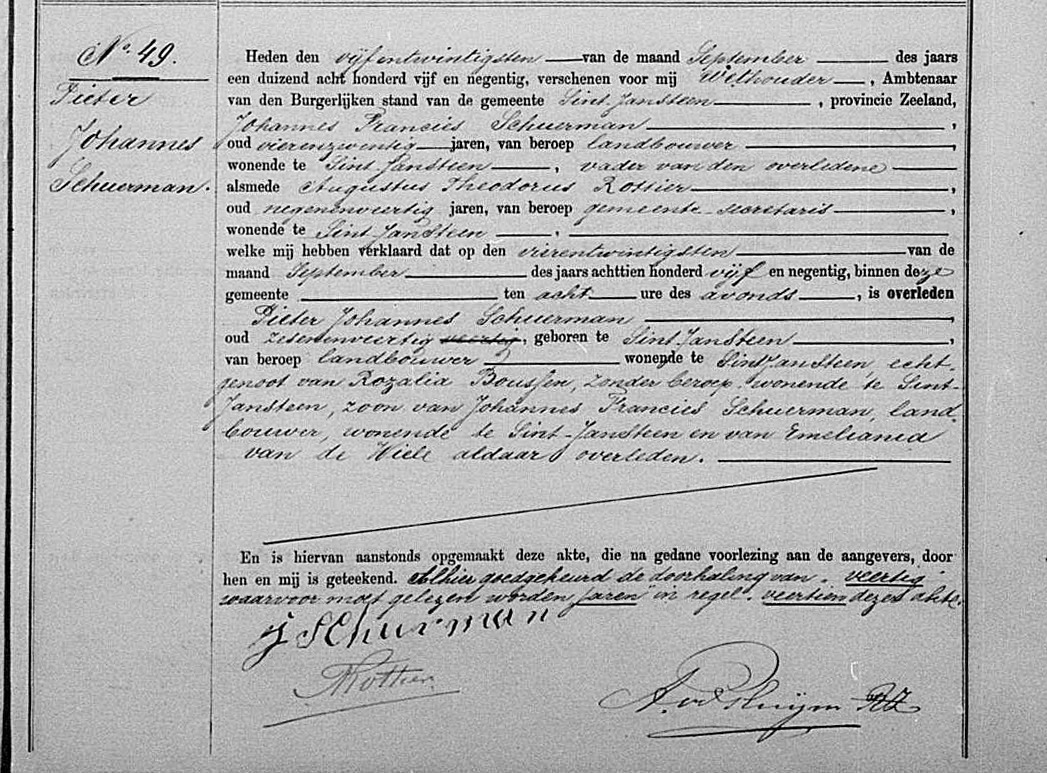 No. 49.
Pieter
Johannes
Schuerman.
Heden den vijfentwintigsten van de maand September des jaars
een duizend acht honderd vijf en negentig, verschenen voor mij Wethouder, Ambtenaar
van den Burgerlijken stand van de gemeente Sint Jansteen, provincie Zeeland,
Johannes Francies Schuerman,
oud vierenzeventig jaren, van beroep landbouwer,
wonende te Sint Jansteen, vader van den overledene
alsmede Augustus Theodorus Rottier,
oud negenenveertig jaren, van beroep gemeente-secretaris,
wonende te Sint Jansteen.
welke mij hebben verklaard dat op den vierentwintigsten van de
maand September des jaars achttien honderd vijf en negentig, binnen deze
gemeente ten acht ure des avonds, is overleden
Pieter Johannes Schuerman,
oud zesenveertig veertig, geboren te Sint Jansteen,
van beroep landbouwer wonende te Sint Jansteen, echt-
genoot van Rozalia Boussen, zonder beroep, wonende te Sint-
Jansteen, zoon van Johannes Francies Schuerman, land-
bouwer, wonende te Sint-Jansteen en van Emeliana
van de Wiele aldaar overleden.
En is hiervan aanstonds opgemaakt deze akte, die na gedane voorlezing aan de aangevers, door
hen en mij is geteekend. Alhier goedgekeurd de doorhaling van "veertig"
waarvoor moet gelezen worden "jaren" in regel "veertien dezer akte.
J Schurman
ARottier